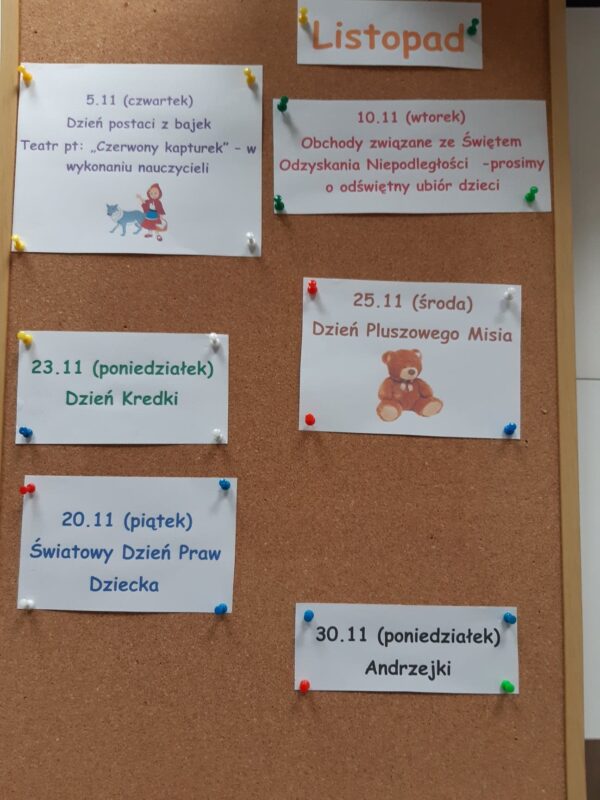 Listopad
5.11 (czwartek)
Dzień postaci z bajek
Teatr pt: „Czerwony kapturek” - w
wykonaniu nauczycieli
10.11 (wtorek)
Obchody związane ze Świętem
Odzyskania Niepodległości -prosimy
o odświętny ubiór dzieci
25.11 (środa)
Dzień Pluszowego Misia
23.11 (poniedziałek)
Dzień Kredki
20.11 (piątek)
Światowy Dzień Praw
Dziecka
30.11 (poniedziałek)
Andrzejki